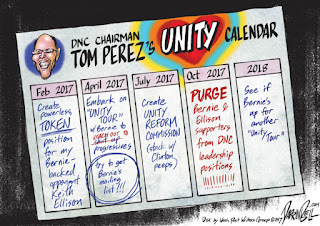 DNC CHAIRMAN
TOM PEREZ'S UNITY CALENDAR
Feb 2017
Create
powerless
TOKEN
position
for my
Bernie-
backed
opponent
Keith
Ellison
April 2017
Embark on
"UNITY
TOUR"
w/Bernie to
REACH OUT TO
shut up
progressives
try to get
Bernie's
mailing
list?!!
July 2017
Create
UNITY
REFORM
COMMISSION
(stack w/
Clinton
peeps)
Oct 2017
PURGE
Bernie &
Ellison
supporters
from DNC
leadership
positions
2018
See if
Bernie's
up for
another
"Unity
Tour"
Dist. by Wash. Post Writers Group